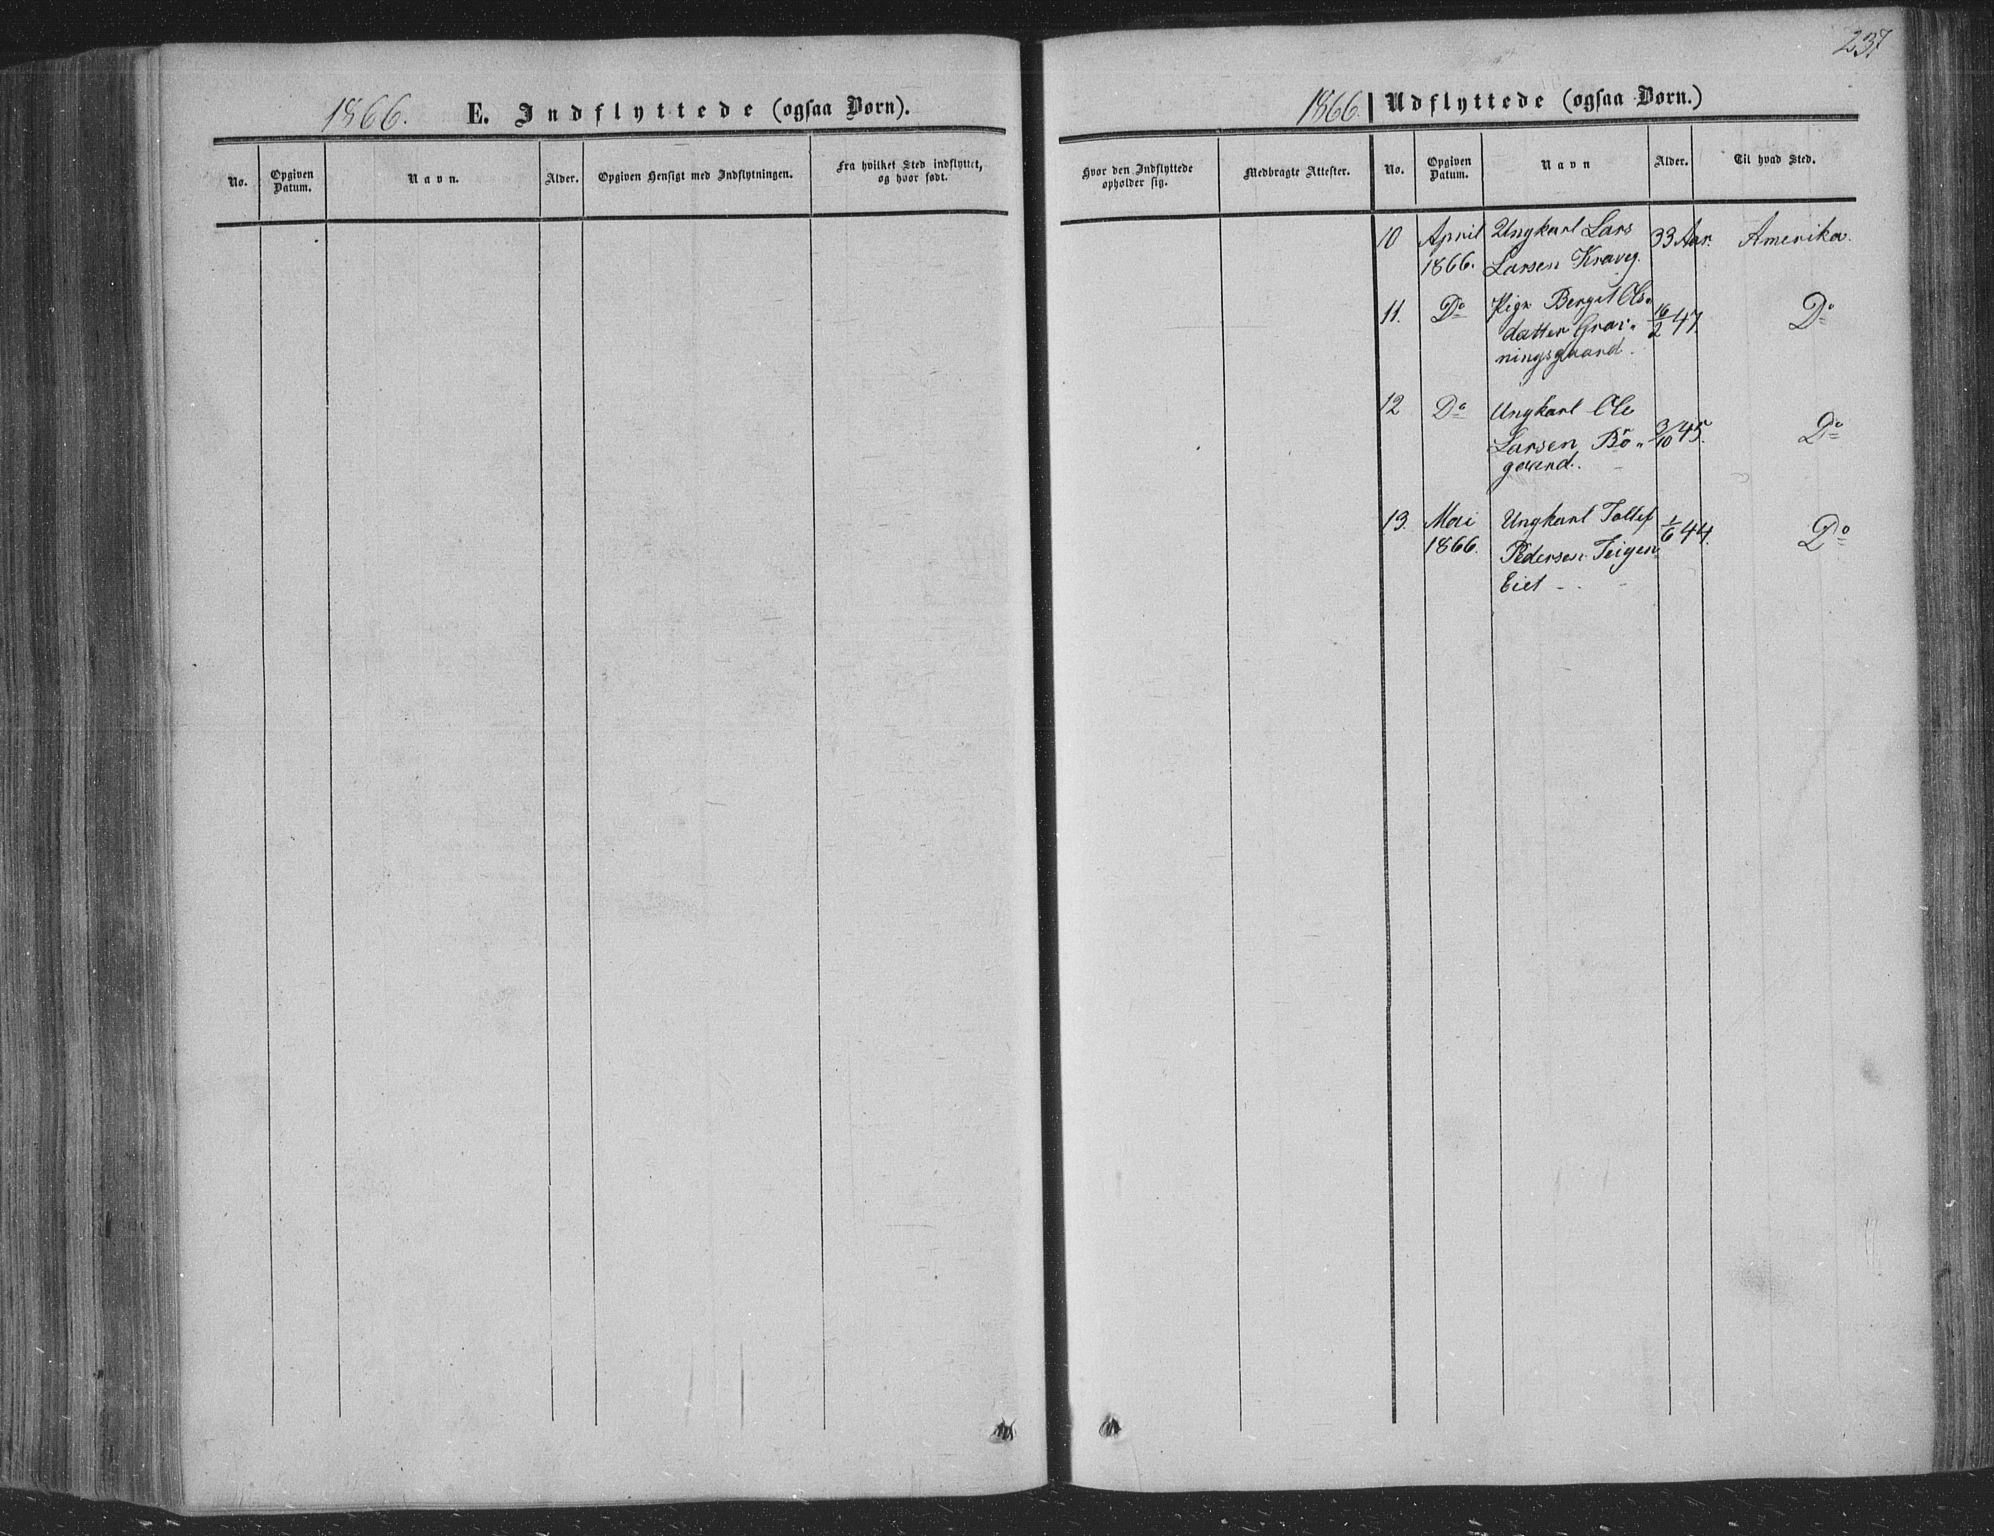 237
1866. E. Indflyttede (ogsaa Børn).
No. Opgiven Datum. Navn. Alder. Opgiven Hensigt med Indflytningen. Fra hvilket Sted indflyttet, og hvor født.
1866 Udflyttede (ogsaa Børn.)
Hvor den Indflyttede opholder sig. Medbragte Attester. No. Opgiven Datum. Navn Alder. Til hvad Sted.
10 April Ungkarl Lars 33 Aar. Amerika.
1866. Larsen Kraveg.
11. Do Pige Bergit Ols- 16/2 47. Do
datter Grøn-
ningsgaard.
12 Do Ungkarl Ole
Larsen Bø- 3/10 45. Do
gaard.
13. Mai Ungkarl Tollef 1/6 44. Do
1866. Pedersen Teigen
Eiet